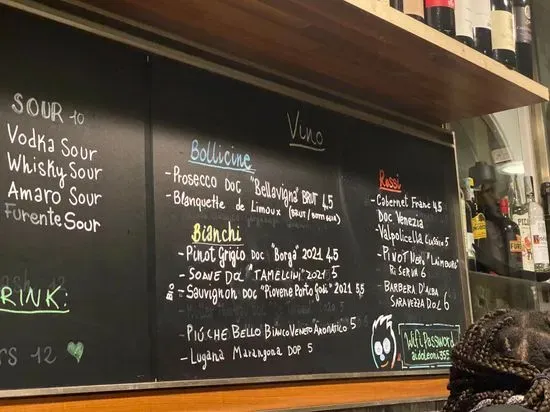 SOUR 10
Vodka Sour
Whisky Sour
Amaro Sour
Furente Sour
RINK:
12
Vino
Bollicine
- Prosecco DOC "Bellavigna" BRUT 4,5
- Blanquette de Limoux
Bianchi
- Pinot Grigio DOC "Borgo" 2021 4,5
- SOAVE DOC "TAMELLINI" 2021 5
BIO
- Sauvignon DOC "Piovene Porto Godi" 2021 3,5
- PIÚ CHE BELLO BIANCO VENETO AROMATICO 5
- Lugana Marangona DOP 5
Rossi
- Cabernet Franc 4,5
DOC Venezia
- Valpolicella Classico 5
- PINOT NERO
RISERVA 6
- BARBERA D'ALBA
SARAVEZZA DOC 6
WiFi Password
aidoleoni355